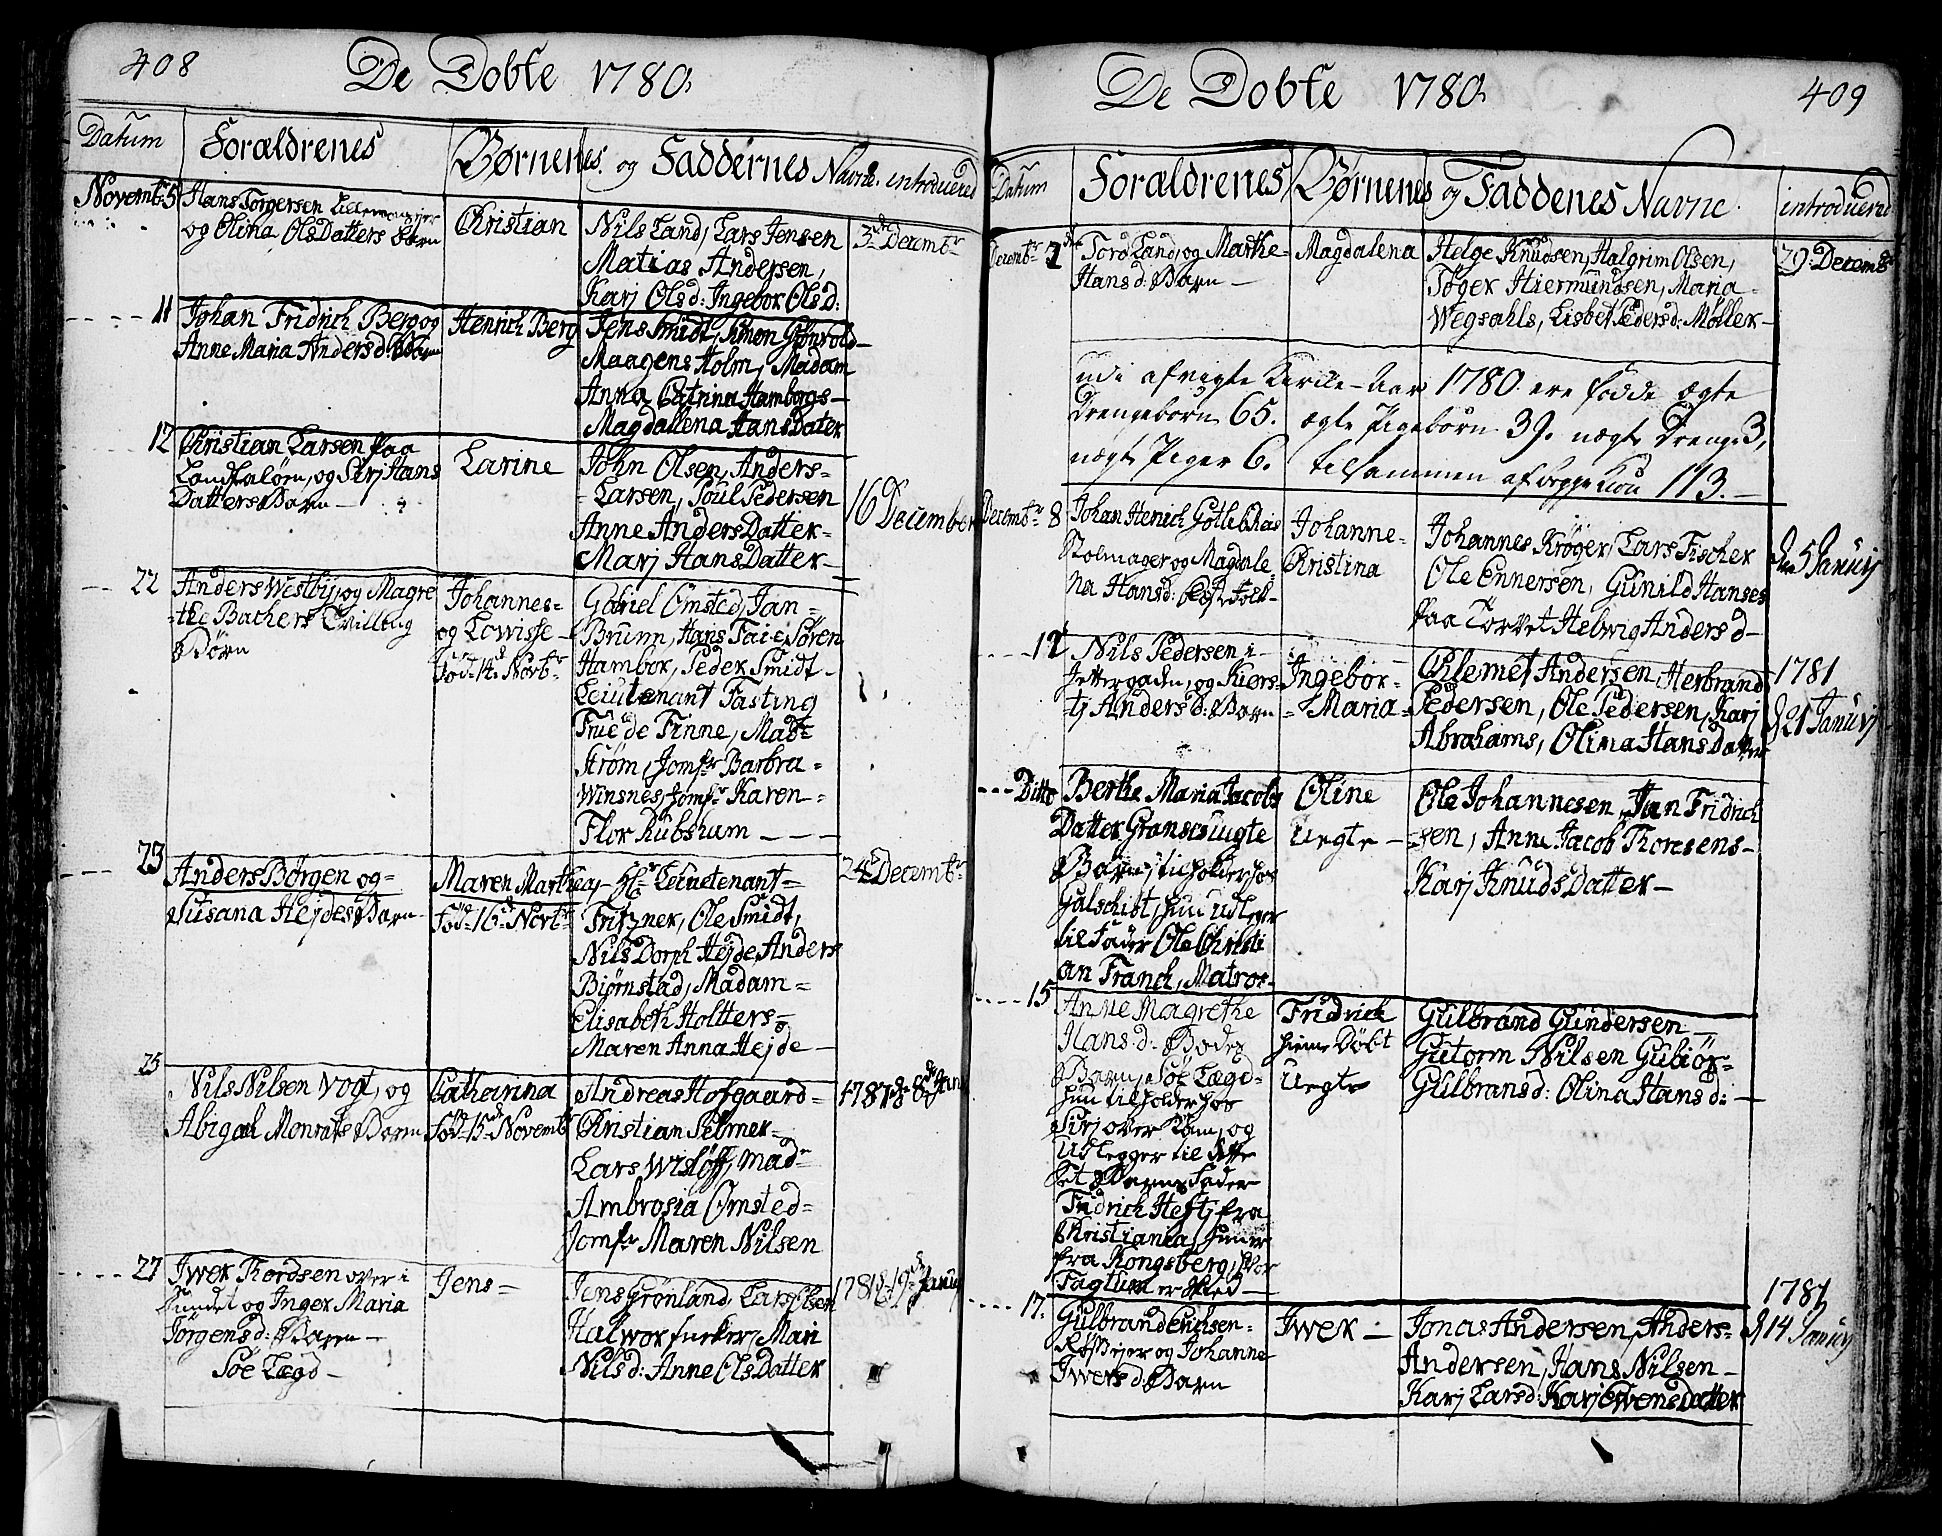 408
De Døbte 1780.
Datum
Forældrenes
Børnenes og Faddernes Navne. introduered
Novembr 5
Hans Torgersen
og Olina OlsDatters Barn
Christian
Nils Land, Lars Jensen
Matias Andersen,
Karj Olsd: Ingebor Olsd:
3de Decembr
11
Johan Fridrich Berg og
Anne Maria Andersd: Barn
Henrich Berg
Jens Smidt, Simon Grønvold
Maagens Holm, Madam
Anna Catrina Hamborgs
Magdallena HansDatter
12
Christian Larsen paa
og Sirj Hans
Datters Barn
Larine
John Olsen, Anders
Larsen, Poul Pedersen
Anne AndersDatter
Marj HansDatter
16 December
22
Anders Westbÿ, og Magre
the Bachers Tvilling
Børn
Johannes
og Lowisse
fød 14 Novbr
Gabriel Omsted, Jan
Brunn, Hans Faie, Søren
Hambor, Peder Smidt
Leiutenant Fasting
Frue de Finne, Mad
Strøm, Jomfr Barbra
Winsnes, Jomfr Karen
Flor Kubshum
23
Anders Børgen og
Susana Hejdes Barn
Maren Marthea
Fød 16 Novbr
Hr Leiutenant
Fritzner, Ole Smidt,
Nils Dorph Hejde, Anders
Biørnstad, Madam
Elisabeth Holtters
Maren Anna Hejde
24 Decembr
25
Nils Nilsen Vogt, og
Abigael Monrats Barn
Catharina
Fød 15 Novembr
Andreas Hofgaard
Christian Selmer
Lars Wisløff, Mad
Ambrosia Omsted
Jomfr Maren Nilsen
1781 d 8 Janu
27
Iwer Thordsen over i
Sundet og Inger Maria
Jørgensd: Barn
Søe Lægd
Jens
Jens Grønland, Lars Olsen
Halwor Furker, Mari
Nilsd: Anne OlsDatter
1781 d 19 Januarj
409
De Døbte 1780.
Datum
Forældrenes
Børnenes og Faddenes Navne
introduered
Decembr 3
Tord Land, og Marthe
Hansd: Barn
Magdalena
Helge Knudsen, Halgrim Olsen,
Tøger Hiermundsen, Maria
Wegsahls, Lisbet Pedersd: Møller
29 Decembr
udi afvigte Kirke-Aar 1780 ere fødde ægte
Drengebørn 65. ægte Pigebørn 39. uægte Drenge 3,
uægte Piger 6. tilsammen af begge Kiøn 113.
Decembr 8
Johan Henrich Gotleb
Stolmager og Magdale
na Hansd:
Johanne
Christina
Johannes Krøger, Lars Fischer
Ole Ennersen, Gunild Hanses
paa Torvet Helwig Andersd
d 5 Januarj
12
Nils Pedersen i
og Kiers
tj Andersd: Barn
Ingebor
Maria
Clemet Andersen Herbrand
Pedersen, Ole Pedersen, Karj
Abrahams, Olina HansDatter
1781
d 21 Januarj
Ditto
Berthe Maria Jacobs
Datter Granses uegte
Barn, tilholder hos
Galschiøt, hun udleger
til Fader Ole Christi
an Franch, Matros
Oline
Uegte
Ole Johannesen, Jan Fridrich
sen, Anne Jacob Thoresens
Karj KnudsDatter
15
Anne Magrethe
Hansd: Bodes
Barn, Søe Lægd
hun tilholder hos
Sirj over Aam, og
Udlegger til dette
sit Barns Fader
Fridrich Heftj fra
Christiania, hun er
fra Kongsberg, hvor
Fridrich
hieme Døbt
Uegte
Gulbrand Gundersen
Gutorm Nilsen Gubiør
Gulbransd: Olina Hansd:
17.
Gulbrand Erichsen
og Johanne
Iwersd: Barn
Iwer
Jonas Andersen, Anders
Andersen, Hans Nilsen
Karj Larsd: Karj EwensDatter
1781
d 14 Januarj